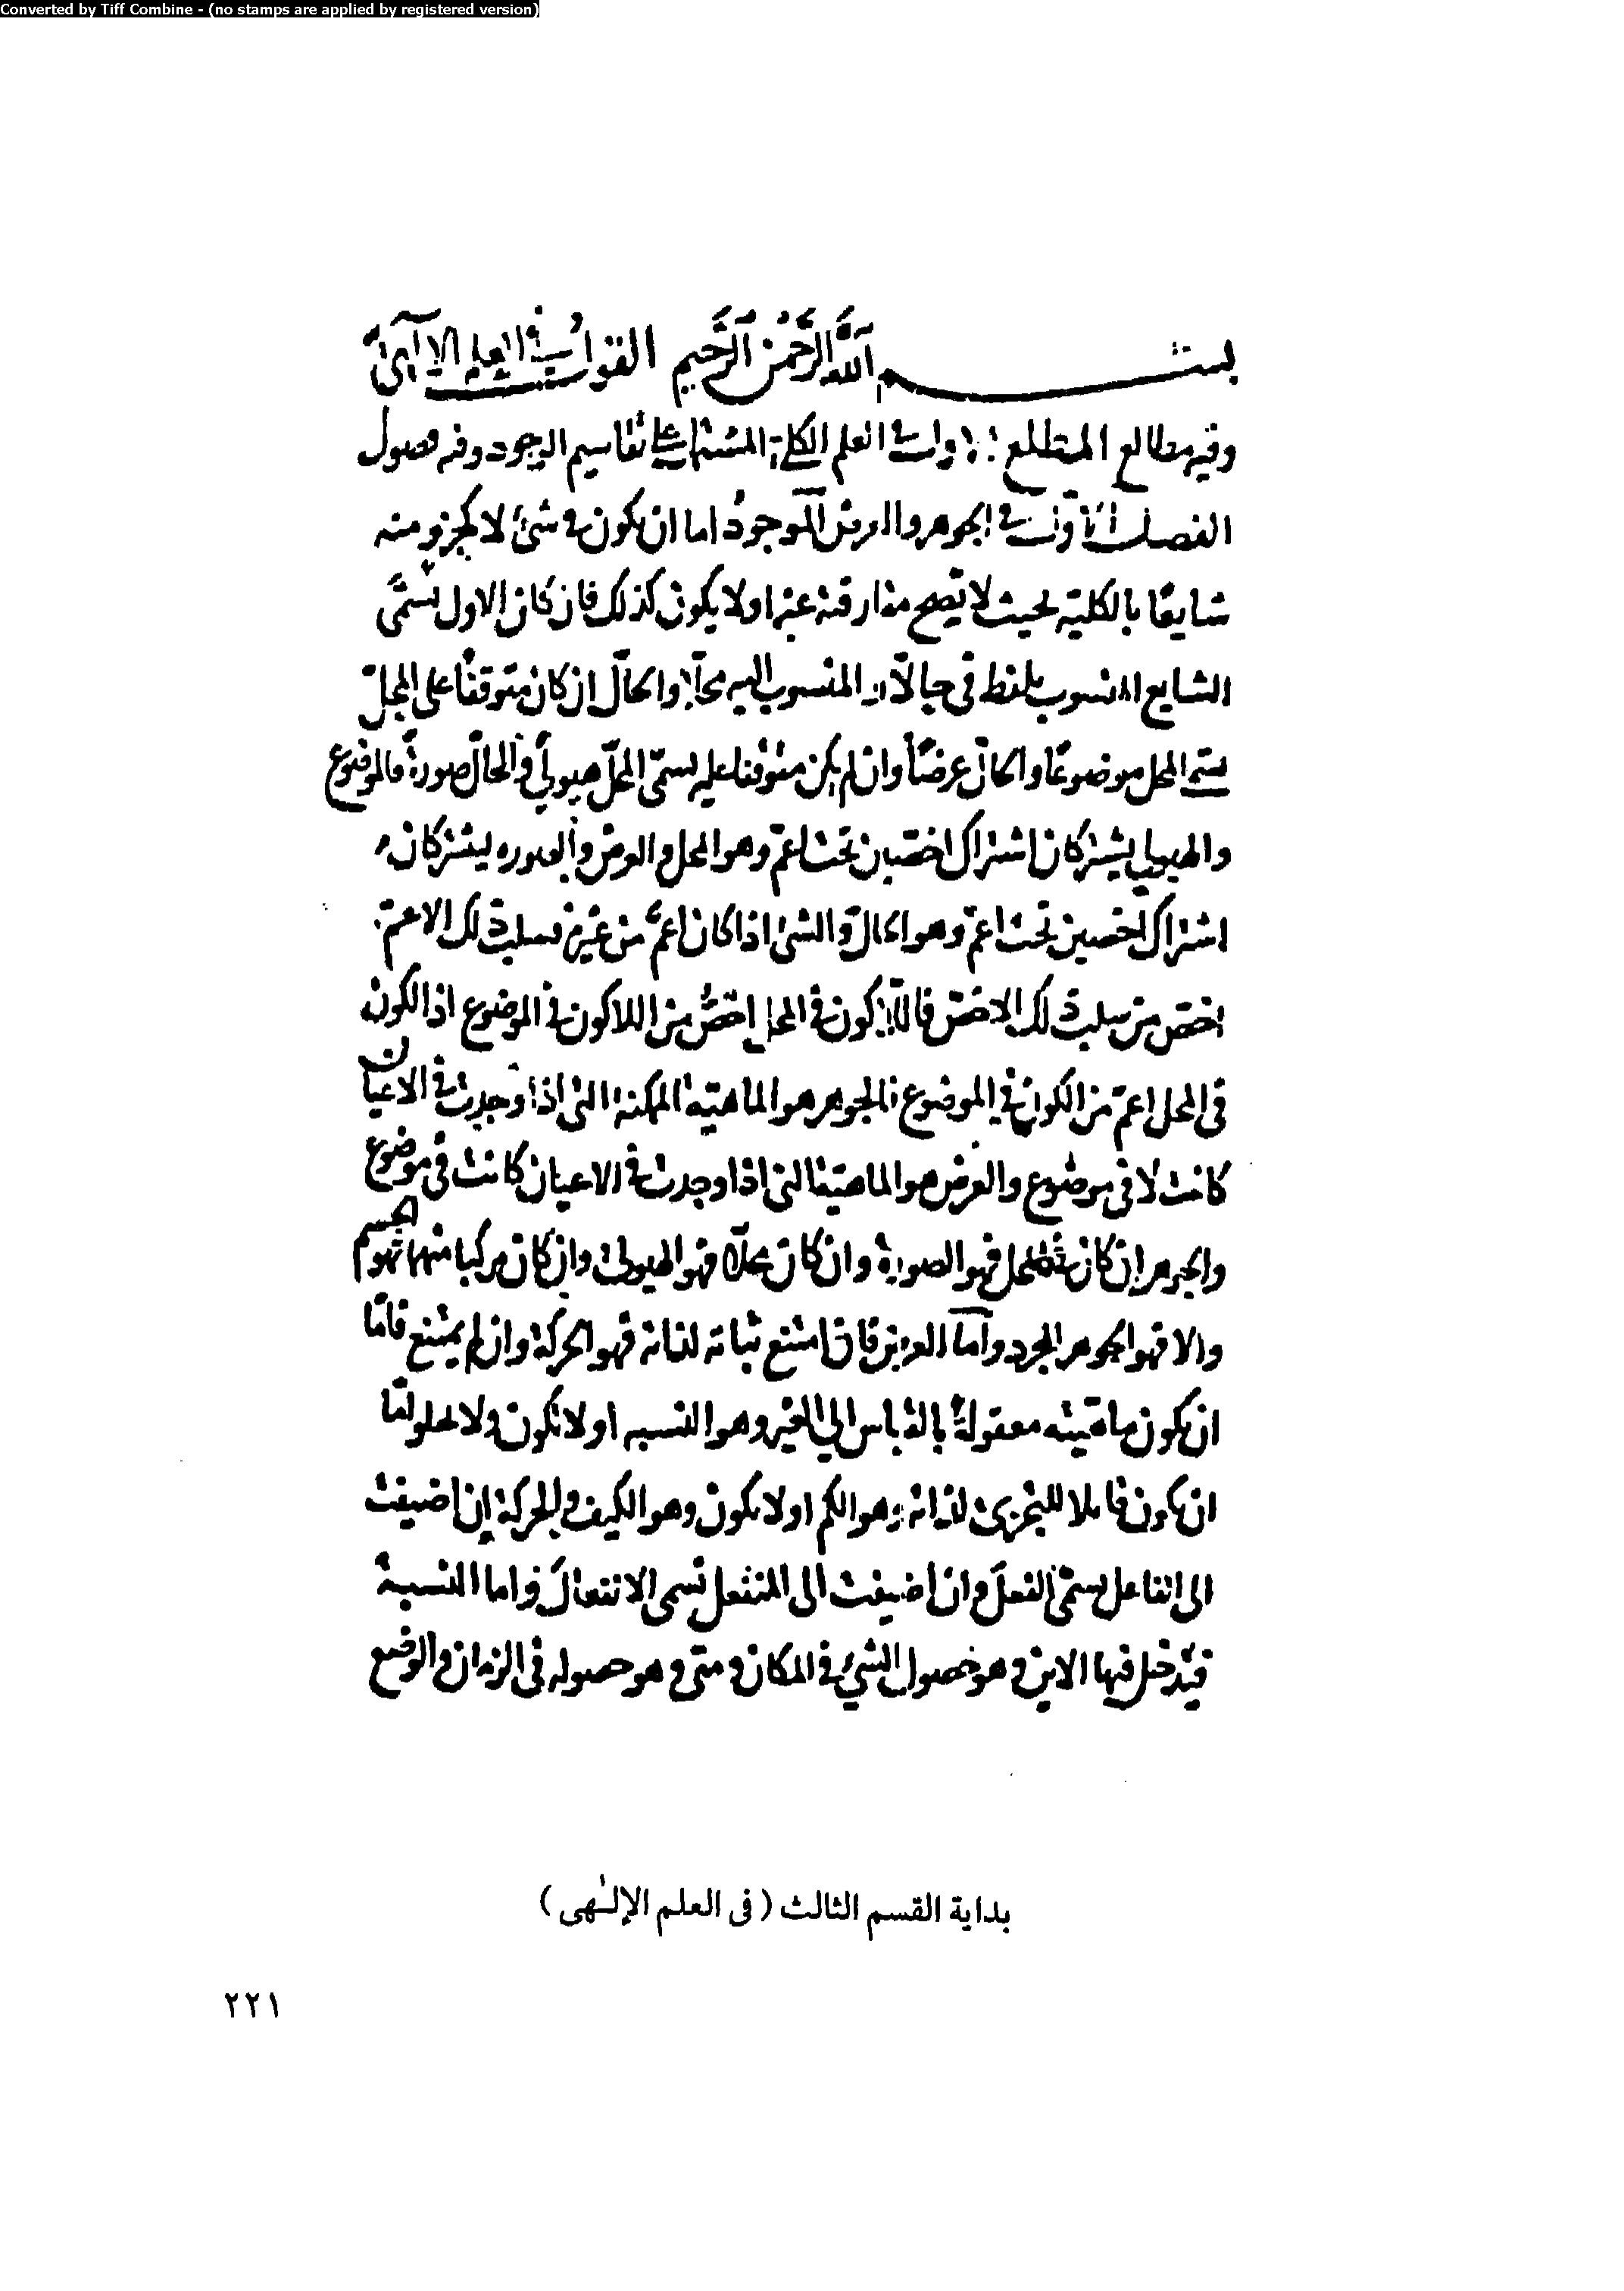 Converted by Tiff Combine - (no stamps are applied by registered version)
بسم الله الرحمن الرحيم القول في العلم الالهى
وفيه مطالع المطلع الاول في العلم الكلي المشتمل على تقاسيم الوجود وفيه فصول
الفصل الاول في الجوهر والعرض الموجود اما ان يكون في شئ لا كجزو منه
شايعًا بالكلية بحيث لا تصح مفارقته عنه او لا يكون كذلك فان كان الاول يسمّى
الشايع المنسوب بلفظ فى حالّا و المنسوب اليه محلّا والحالّ ان كان متوقفًا على المحلّ
يسمى المحل موضوعًا والحالّ عرضًا وان لم يكن متوقفا عليه يسمّى المحلّ هيولى والحالّ صورة فالموضوع
والهيولى يشتركان اشتراك اخصين تحت اعم وهو المحل والعرض والصوره يشتركان
اشتراك اخصين تحت اعمّ وهو الحالّ والشئ اذا كان اعمّ من غيره فسلب ذلك الاعمّ
اخصّ من سلب ذلك الاخصّ فاللاكون في المحل اخصّ من اللاكون في الموضوع اذ الكون
فى المحل اعمّ من الكون في الموضوع فالجوهر هو الماهيّة الممكنة التى اذا وجدت في الاعيان
كانت لا فى موضوع والعرض هو الماهيّة التى اذا وجدت في الاعيان كانت فى موضوع
والجوهر ان كان في المحل فهو الصورة وان كان محلّا فهو الهيولى وان كان مركبا منهما فهو الجسم
والا فهو الجوهر المجرد وامّا العرض فان امتنع ثباته لذاته فهو الحركة وان لم يمتنع فامّا
ان يكون ماهيّته معقولة بالقياس الى الغير وهو النسبه او لا يكون ولا يخلو امّا
ان يكون قابلا للتجزى لذاته وهو الكم او لا يكون وهو الكيف والحركة ان اضيفت
الى الفاعل يسمّى الفعل وان اضيفت الى المنفعل تسمى الانفعال واما النسبة
فيدخل فيها الاين وهو حصول الشئ في المكان ومتى وهو حصوله فى الزمان والوضع
بداية القسم الثالث ( فى العلم الإلٰهى )
٢٢١